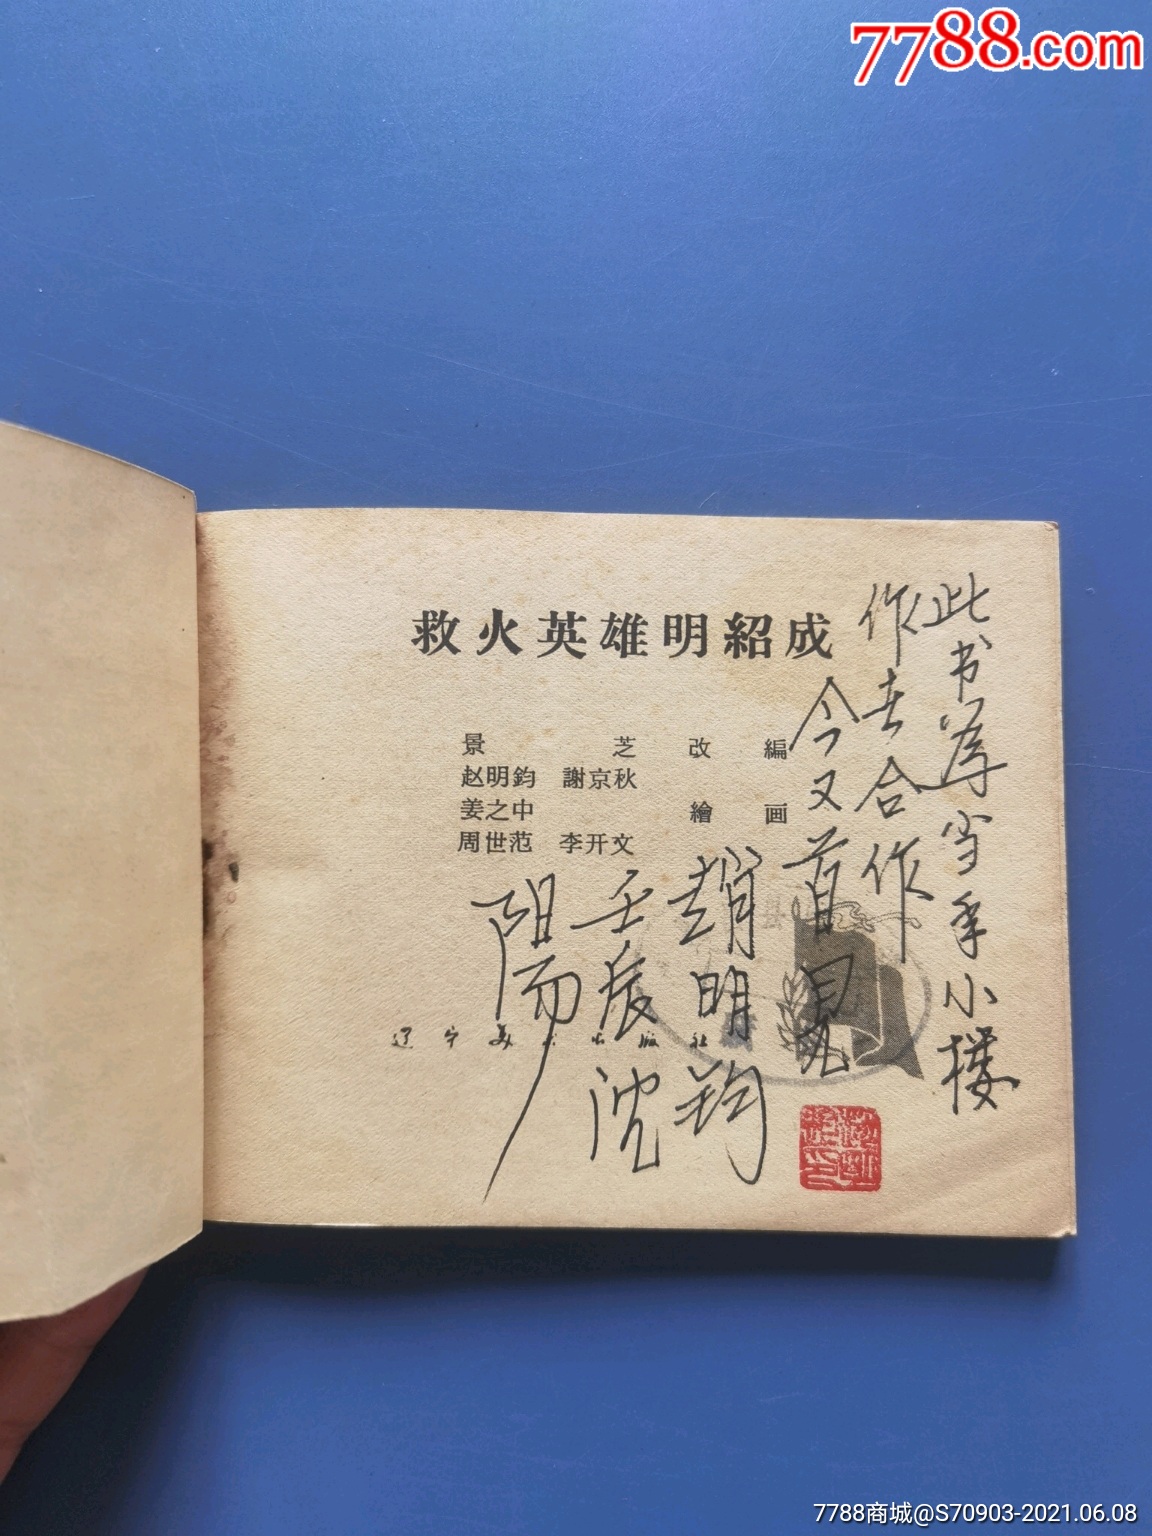 7788.com
救火英雄明紹成
景 芝 改 編
赵明鈞 謝京秋
姜之中 繪 画
周世范 李开文
辽宁美术出版社
此书为当年小楼
作者合作
今又首見
趙明钧
壬辰 沈
阳
7788商城@S70903-2021.06.08